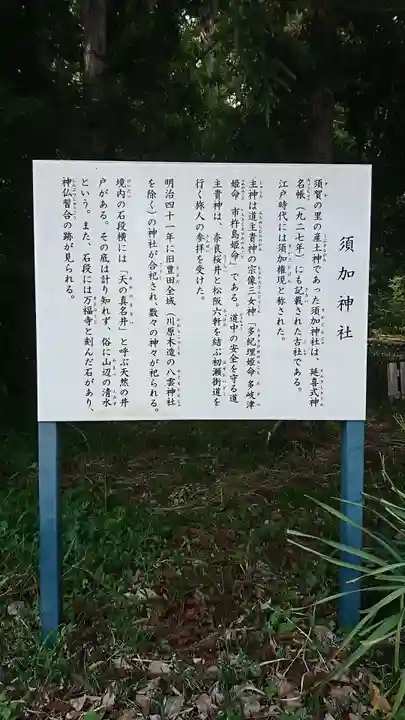 須加神社
須賀の里の産土神であった須加神社は、延喜式神
名帳（九二七年）にも記載された古社である。
江戸時代には須加権現と称された。
主神は道主貴神の宗像三女神「多紀理姫命 多岐津
姫命 市杵島姫命」である。道中の安全を守る道
主貴神は、奈良桜井と松阪六軒を結ぶ初瀬街道を
行く旅人の参拝を受けた。
明治四十一年に旧豊田全域（川原木造の八雲神社
を除く）の神社が合祀され、数々の神々が祀られる。
境内の石段横には「天の真名井」と呼ぶ天然の井
戸がある。その底は計り知れず、俗に山辺の清水
という。また、石段には万福寺と刻んだ石があり、
神仏習合の跡が見られる。